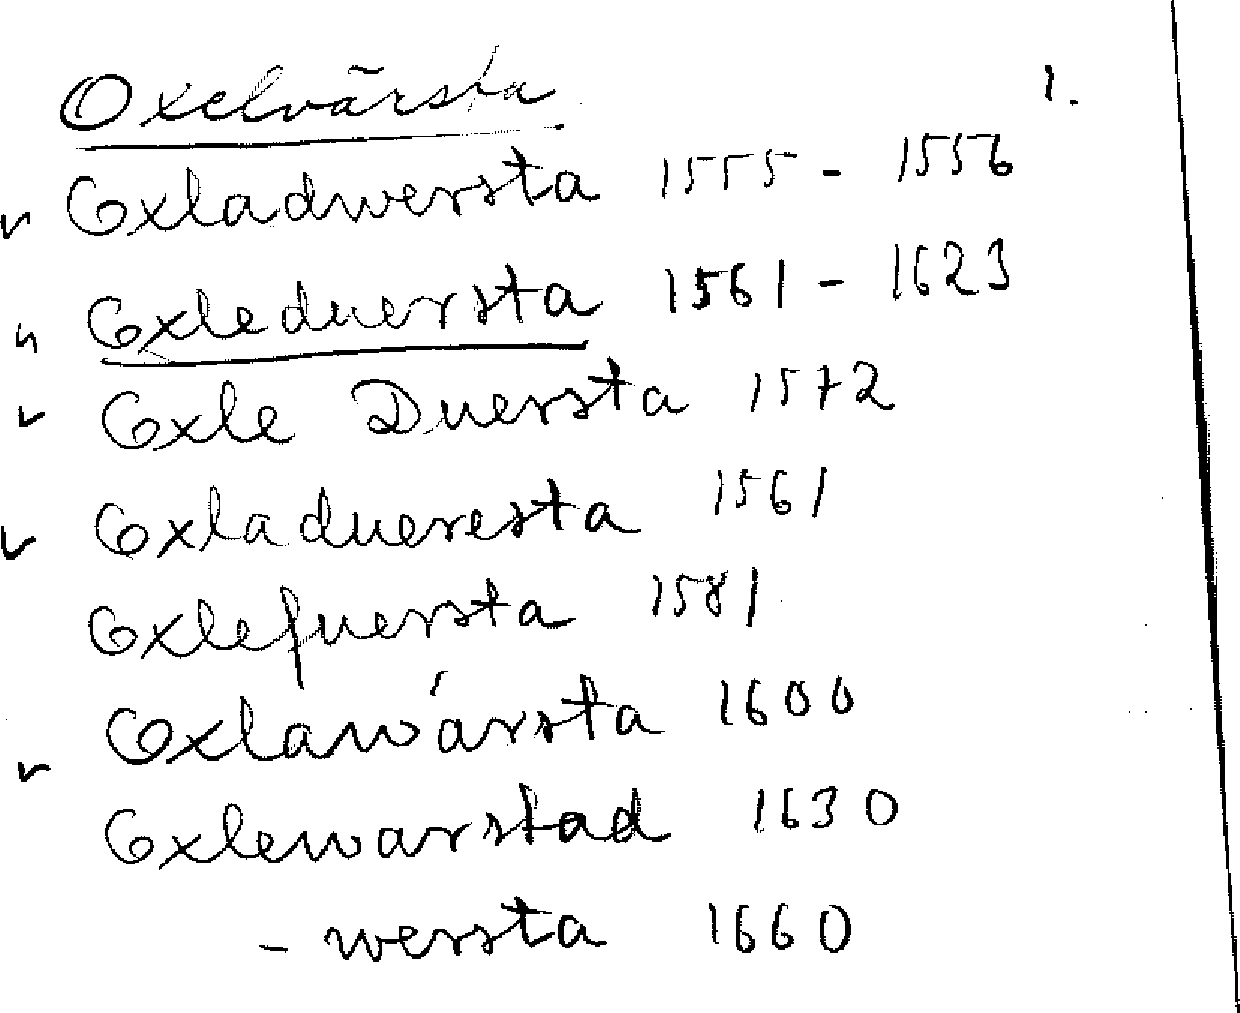 Oxelvärsta 1.
Oxladwersta 1555 - 1556
Oxleduersta 1561 - 1623
Oxle Duersta 1572
Oxladueresta 1561
Oxlefuersta 1581
Oxlawársta 1600
Oxlewarstad 1630
- wersta 1660